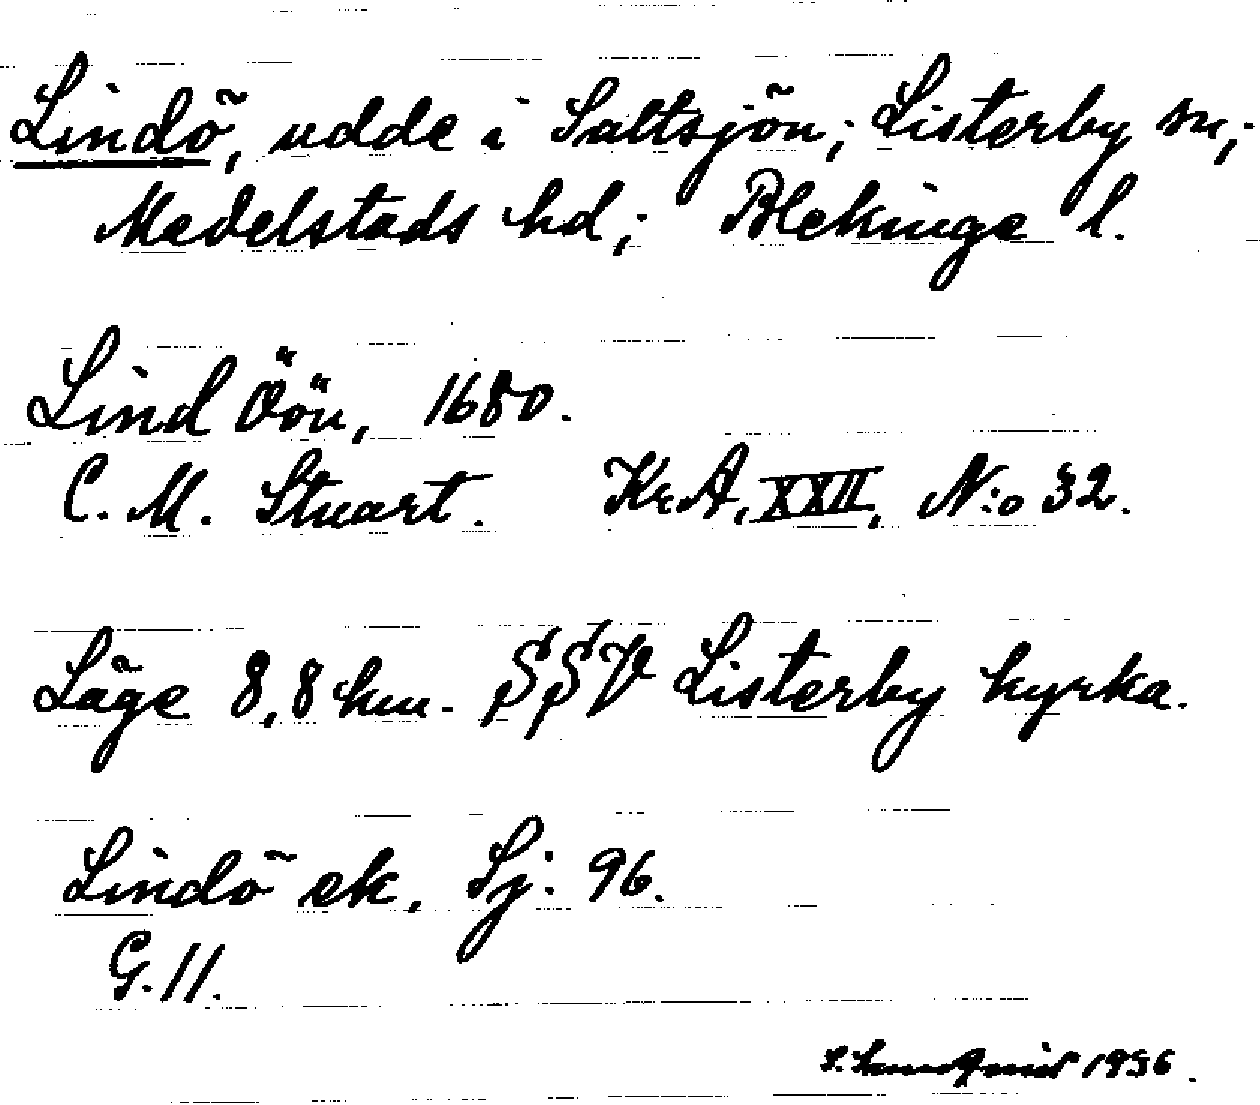 Lindö, udde i Saltsjön; Listerby sn;
Medelstads hd; Blekinge l.
Lind Öön, 1680.
C. M. Stuart. Kr.A, XXII, N:o 32.
Läge 8,8 km. SSV Listerby kyrka.
Lindö ek. Sj: 96.
G. 11.
1936.